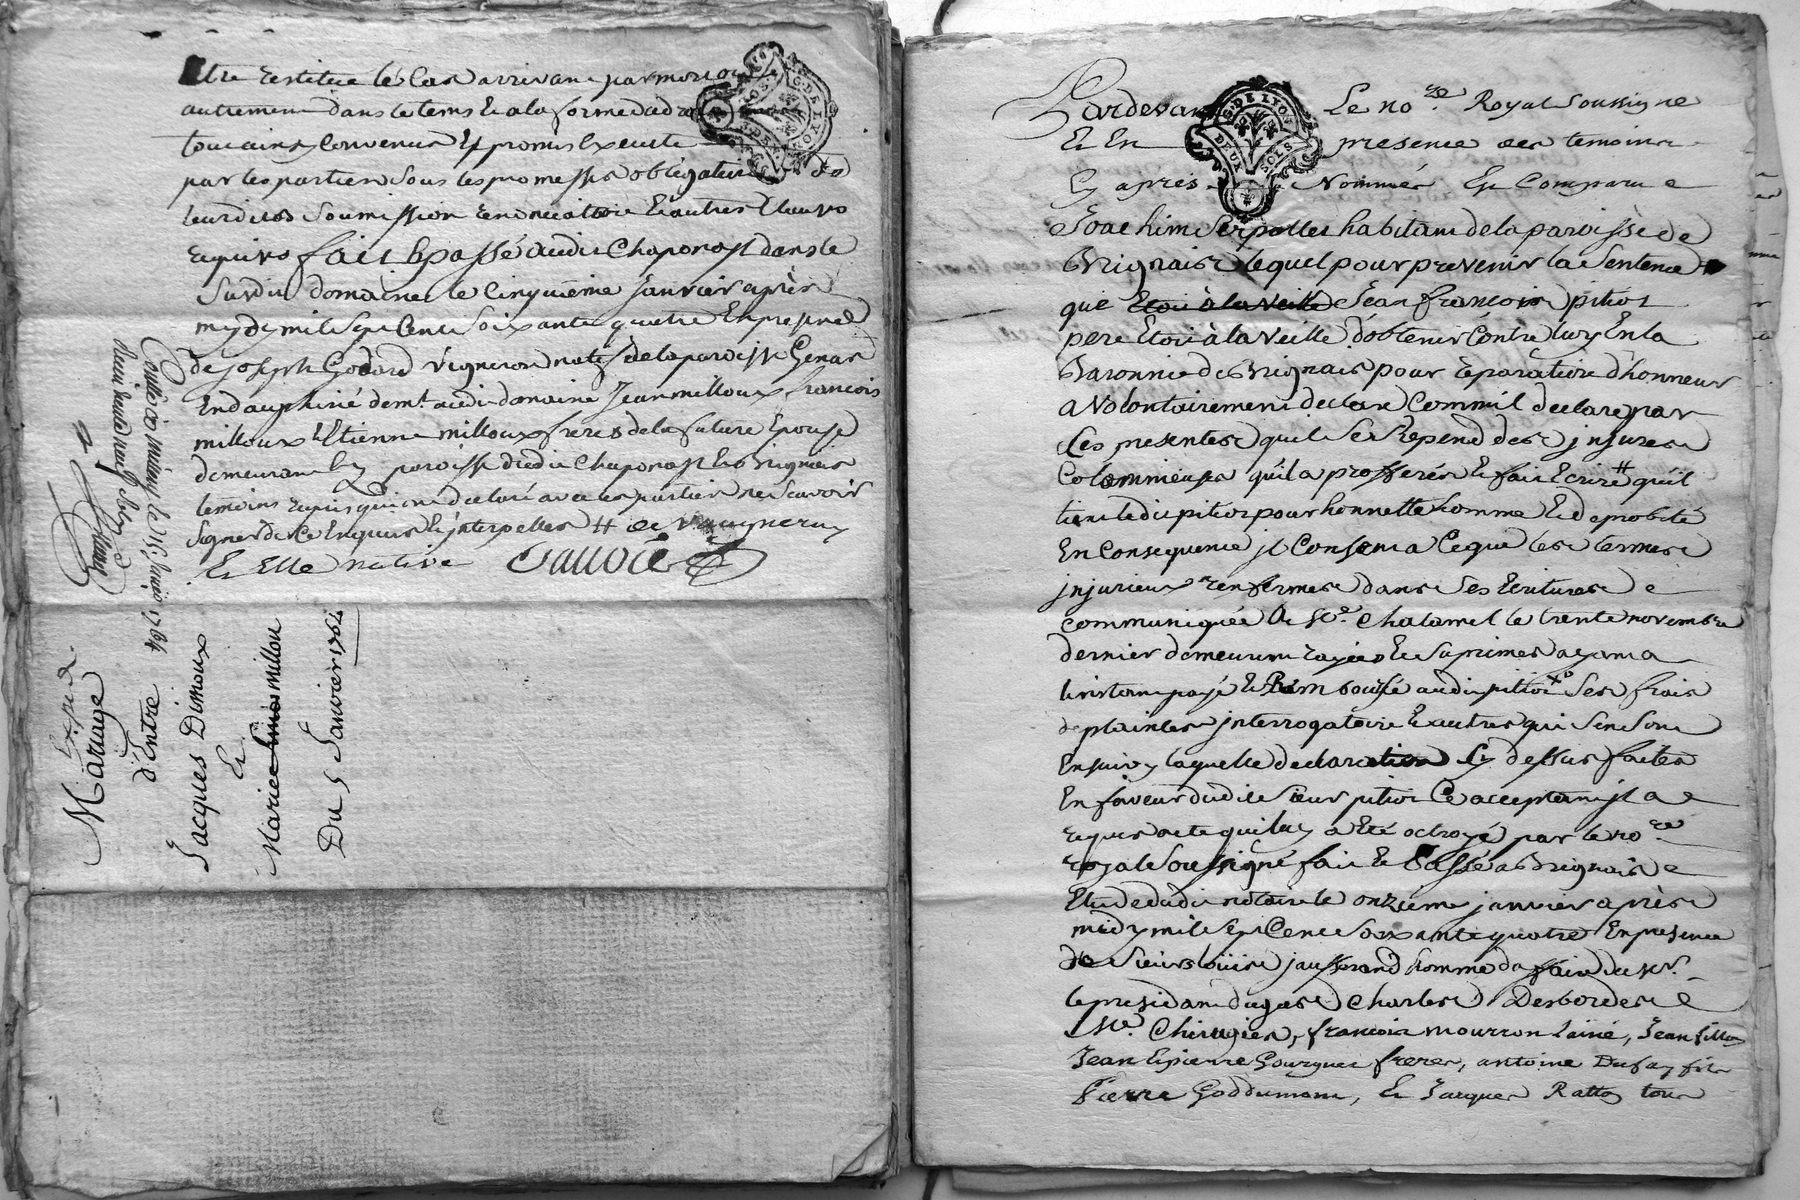 être restitué le Cas arrivant par mort ou
autrement dans le tems et a la forme du dro
tout ainsy Convenus Et promis Executer
par les parties sous les promesses obligations
leurdites Soumission renonciation Et autres Clauses
requises fait & passé audit Chaponost dans le
Susdit domaine le Cinquième janvier après
midy mil Sept Cent Soixante quatre En presence
de joseph Godard vigneron natif de la paroisse Genas
En dauphiné demt. audit domaine Jean milloux françois
milloux & Etienne milloux freres de la future Epouse
demeurant Ez paroisse dudit Chaponost & Brignais
temoins requis qui ont declaré avec les parties ne Scavoir
Signer de Ce Enquis & interpellés # de Vaugneray
& Elle native
G. DE LYON
DEUX SOLS
Contlé à st. janvier 1764
Expié.
Mariage
d'Entre
Jacques Dimoux
Et
Marie millou
Du 5 Janvier 1764
Pardevant Le nore Royal Soussigné
Et En presence des temoins
Cy après Nommés Est Comparu
Joachim Serpollet habitant de la paroisse de
Brignais lequel pour prevenir la Sentence
que Etoit à la veille Jean françois pitiot
pere Etoit à la veille d'obtenir Contre luy En la
Baronnie de Brignais pour reparation d'honneur
a volontairement declaré Comm'il declare par
Ces presentes qu'il Se Repend des injures
Calomnieuses qu'il a profferés & fait Ecrire # qu'il
tient ledit pitiot pour honnette homme Et de probité
En Consequence il Consent a Ce que les termes
injurieux renfermes dans Ses Ecritures
communiquée A Me. Chalamel le trente novembre
dernier demeurent rayées & Suprimes ayant a
l'instant payé & Remboursé audit pitiot Ses frais
de plaintes interrogatoire & autres qui S'en Sont
Ensuivy laquelle declaration Cy dessus faites
En faveur dudit Sieur pitiot Ce acceptant il a
requis acte qui luy a Eté octroyé par le nore
royal Soussigné fait & Passé a Brignais
Etude dudit notaire le onzieme janvier après
midy mil Sept Cent Soixante quatre En presence
de Sieurs Louis jausserand homme daffaire de Mr.
le president dugas Charles Desbordes
Me. Chirugien, francois mourron l'ainé, Jean fillon
Jean & pierre Gourguet freres, antoine Dufay fils
Pierre Goddumant, & Jacques Ratton tous
G. DE LYON
DEUX SOLS